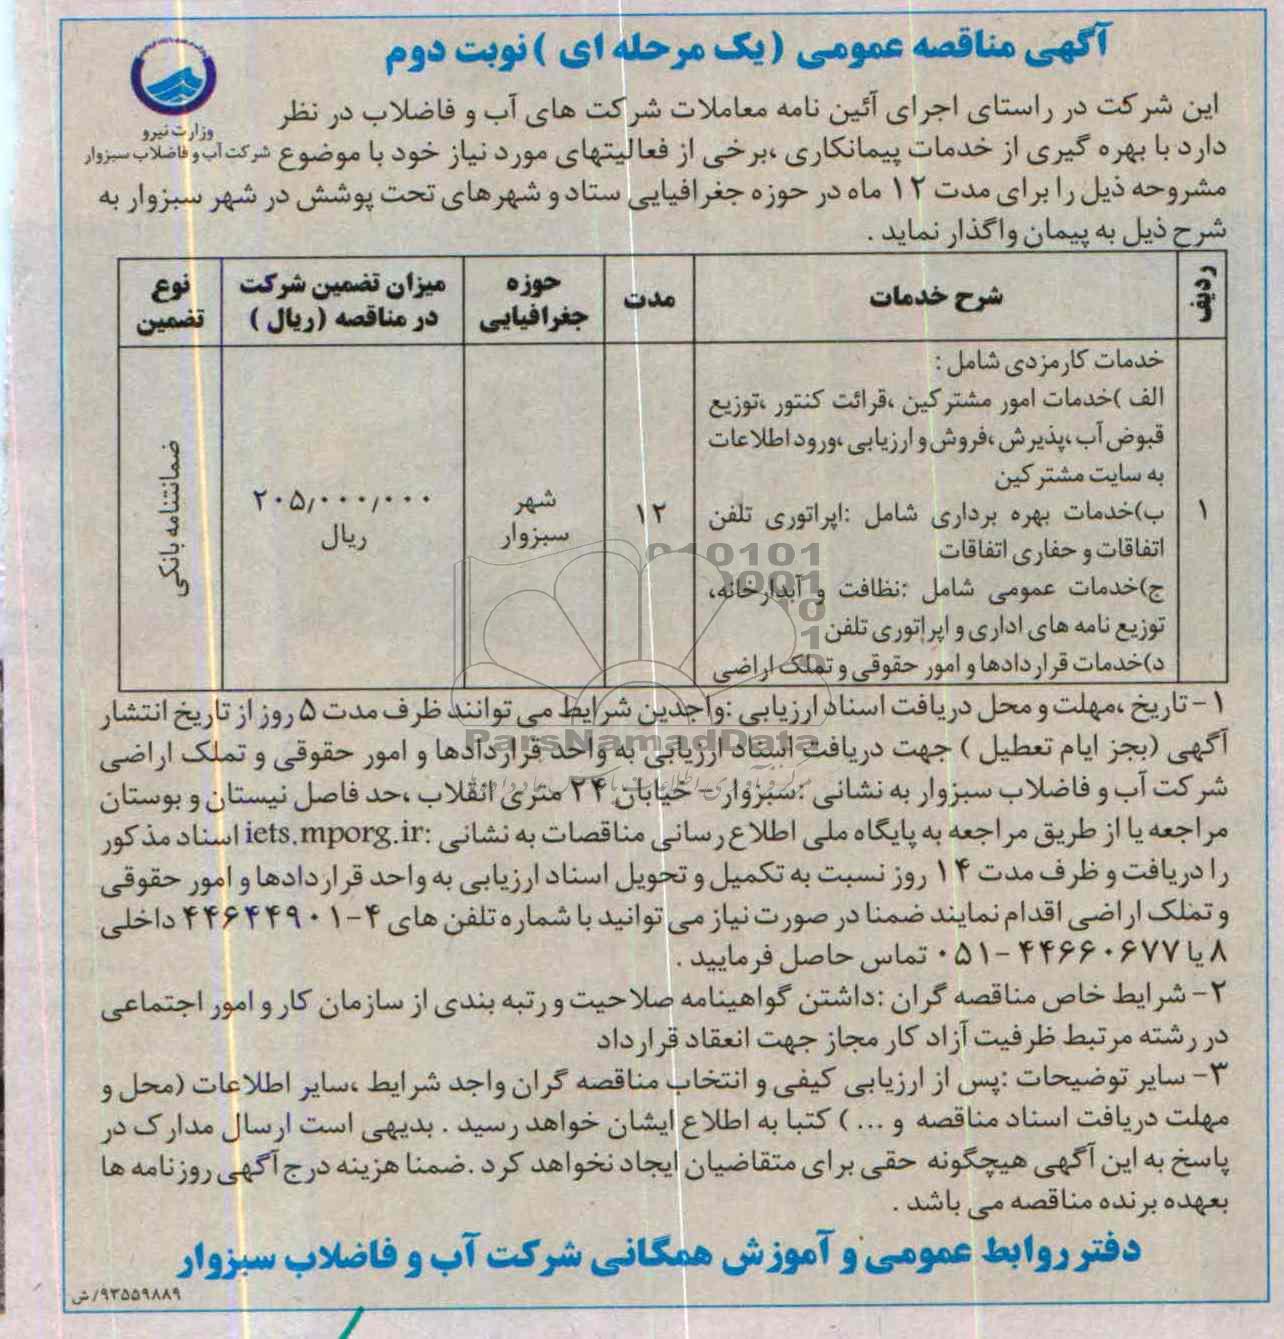 آگهی مناقصه عمومی (یک مرحله ای) نوبت دوم
وزارت نیرو
شرکت آب و فاضلاب سبزوار
این شرکت در راستای اجرای آئین نامه معاملات شرکت های آب و فاضلاب در نظر
دارد با بهره گیری از خدمات پیمانکاری ،برخی از فعالیتهای مورد نیاز خود با موضوع
مشروحه ذیل را برای مدت ۱۲ ماه در حوزه جغرافیایی ستاد و شهرهای تحت پوشش در شهر سبزوار به
شرح ذیل به پیمان واگذار نماید .
ردیف
شرح خدمات
مدت
حوزه
جغرافیایی
میزان تضمین شرکت
در مناقصه (ریال )
نوع
تضمین
۱
خدمات کارمزدی شامل :
الف )خدمات امور مشترکین ،قرائت کنتور ،توزیع
قبوض آب ،پذیرش ،فروش و ارزیابی ،ورود اطلاعات
به سایت مشترکین
ب)خدمات بهره برداری شامل :اپراتوری تلفن
اتفاقات و حفاری اتفاقات
ج)خدمات عمومی شامل :نظافت و آبدارخانه،
توزیع نامه های اداری و اپراتوری تلفن
د)خدمات قراردادها و امور حقوقی و تملک اراضی
۱۲
شهر
سبزوار
۲۰۵/۰۰۰/۰۰۰
ریال
ضمانتنامه بانکی
۱- تاریخ ،مهلت و محل دریافت اسناد ارزیابی :واجدین شرایط می توانند ظرف مدت ۵ روز از تاریخ انتشار
آگهی (بجز ایام تعطیل ) جهت دریافت اسناد ارزیابی به واحد قراردادها و امور حقوقی و تملک اراضی
شرکت آب و فاضلاب سبزوار به نشانی :سبزوار - خیابان ۲۴ متری انقلاب ،حد فاصل نیستان و بوستان
مراجعه یا از طریق مراجعه به پایگاه ملی اطلاع رسانی مناقصات به نشانی :iets.mporg.ir اسناد مذکور
را دریافت و ظرف مدت ۱۴ روز نسبت به تکمیل و تحویل اسناد ارزیابی به واحد قراردادها و امور حقوقی
و تملک اراضی اقدام نمایند ضمنا در صورت نیاز می توانید با شماره تلفن های ۴-۴۴۶۴۴۹۰۱ داخلی
۸ یا ۴۴۶۶۰۶۷۷ -۰۵۱ تماس حاصل فرمایید .
۲- شرایط خاص مناقصه گران :داشتن گواهینامه صلاحیت و رتبه بندی از سازمان کار و امور اجتماعی
در رشته مرتبط ظرفیت آزاد کار مجاز جهت انعقاد قرارداد
۳- سایر توضیحات :پس از ارزیابی کیفی و انتخاب مناقصه گران واجد شرایط ،سایر اطلاعات (محل و
مهلت دریافت اسناد مناقصه و ... ) کتبا به اطلاع ایشان خواهد رسید . بدیهی است ارسال مدارک در
پاسخ به این آگهی هیچگونه حقی برای متقاضیان ایجاد نخواهد کرد .ضمنا هزینه درج آگهی روزنامه ها
بعهده برنده مناقصه می باشد .
دفتر روابط عمومی و آموزش همگانی شرکت آب و فاضلاب سبزوار
۹۳۵۵۹۸۸۹/ش
ParsNamadData